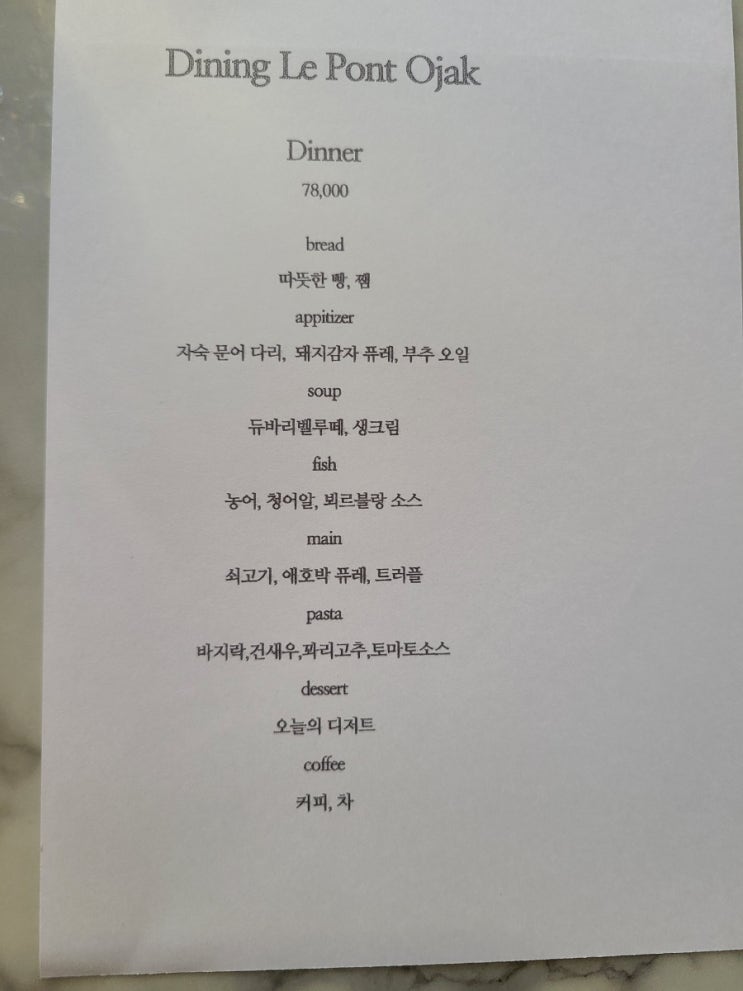 Dining Le Pont Ojak
Dinner
78,000
bread
따뜻한 빵, 쨈
appitizer
자숙 문어 다리, 돼지감자 퓨레, 부추 오일
soup
듀바리벨루떼, 생크림
fish
농어, 청어알, 뵈르블랑 소스
main
쇠고기, 애호박 퓨레, 트러플
pasta
바지락,건새우,꽈리고추,토마토소스
dessert
오늘의 디저트
coffee
커피, 차